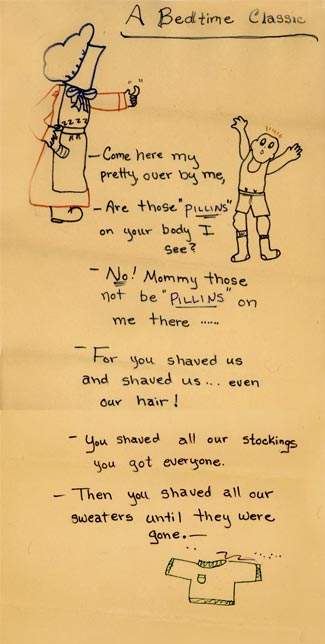 A Bedtime Classic
" "
ZZZZ
- Come here my
pretty, over by me,
- Are those "PILLINS"
on your body I
see?
- No! Mommy those
not be "PILLINS" on
me there ......
- For you shaved us
and shaved us... even
our hair!
- You shaved all our stockings
you got everyone.
- Then you shaved all our
sweaters until they were
gone. -